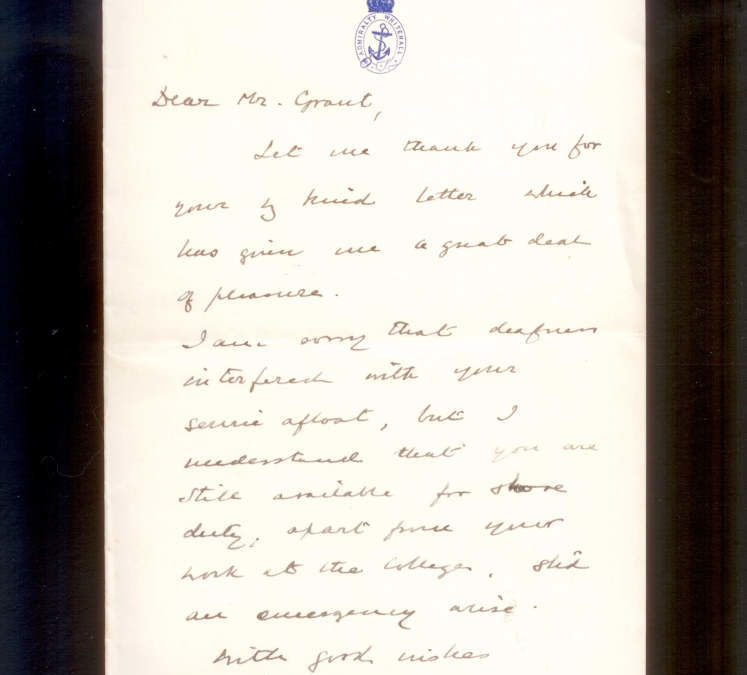 ADMIRALTY WHITEHALL
Dear Mr. Grant,
Let me thank you for
your vy kind letter which
has given me a great deal
of pleasure.
I am sorry that deafness
interfered with your
service afloat, but I
understand that you are
still available for shore
duty, apart from your
work at the College, shd
an emergency arise.
With good wishes